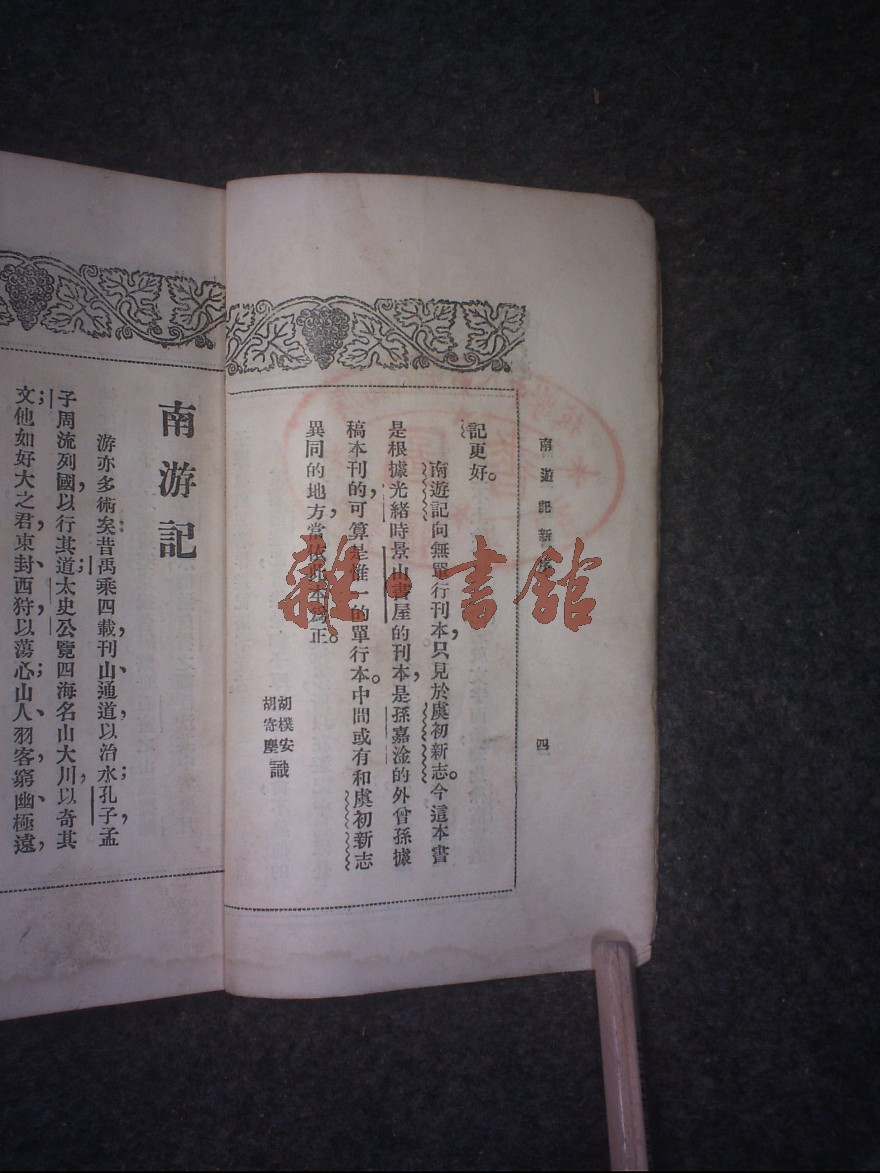 南遊記新序
四
記更好。
南遊記向無單行刊本，只見於虞初新志。今這本書
是根據光緒時景山書屋的刊本，是孫嘉淦的外曾孫據
稿本刊的，可算是惟一的單行本。中間或有和虞初新志
異同的地方，當依此本爲正。
胡樸安
胡寄塵
識
南游記
游亦多術矣昔禹乘四載，刊山、通道以治水；孔子、孟
子周流列國，以行其道；太史公覽四海名山大川，以奇其
文；他如好大之君，東封、西狩以蕩心；山人、羽客，窮幽、極遠，
雜·書館